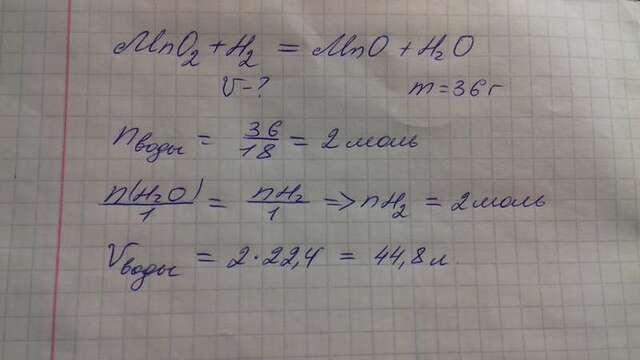 MnO₂ + H₂ = MnO + H₂O
V-? m=36г
nводы = 36/18 = 2 моль
n(H₂O)/1 = nH₂/1 => nH₂ = 2 моль
Vводы = 2·22,4 = 44,8 л